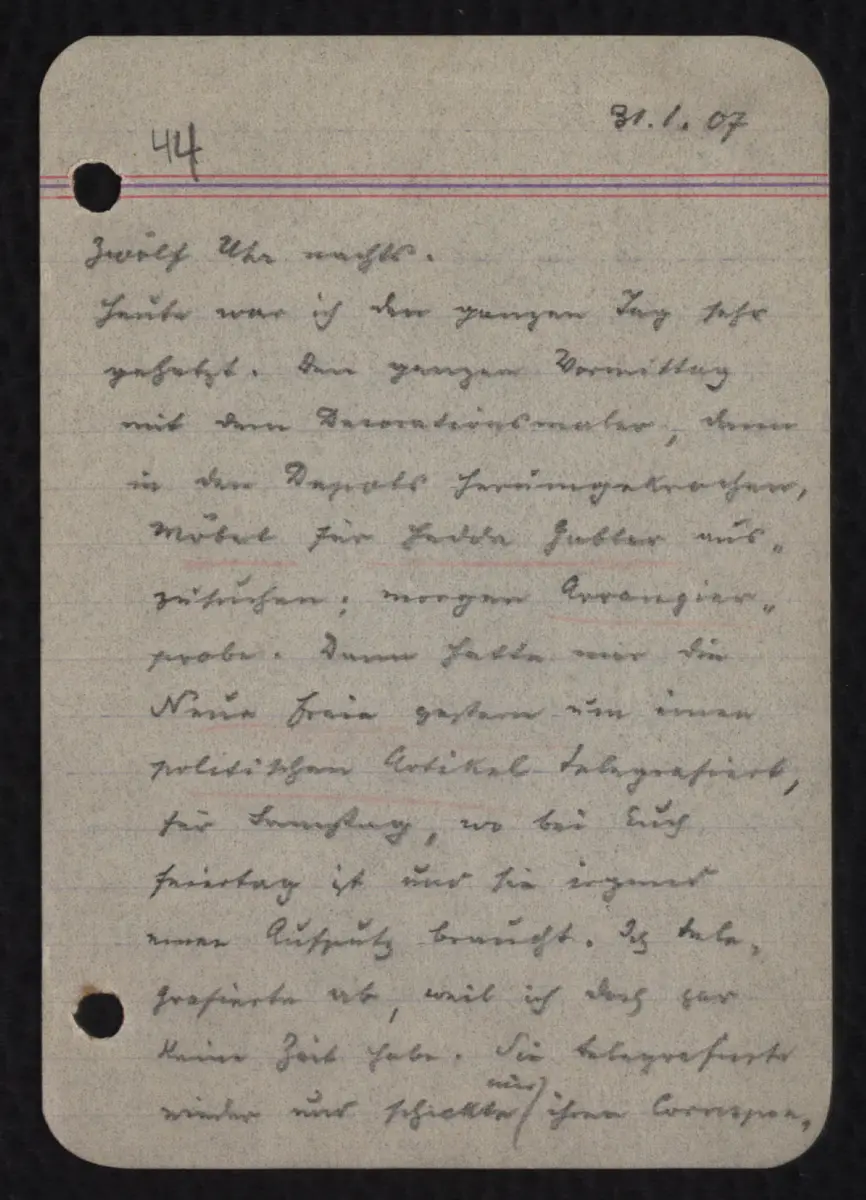 44
31.1.07
Zwölf Uhr nachts.
Heute war ich den ganzen Tag sehr
gehetzt. Den ganzen Vormittag
mit dem Decorationsmaler, dann
in den Depots herumgekrochen,
Möbel für Hedda Gabler aus„
zusuchen; morgen Arrangier„
probe. Dann hatte mir die
Neue Freie gestern um einen
politischen Artikel telegrafiert,
für Samstag, wo bei Euch
Feiertag ist und sie irgend
einen Aufputz braucht. Ich tele„
grafierte ab, weil ich doch gar
keine Zeit habe. Sie telegrafierte
wieder und schickte mir ihren Correspon„